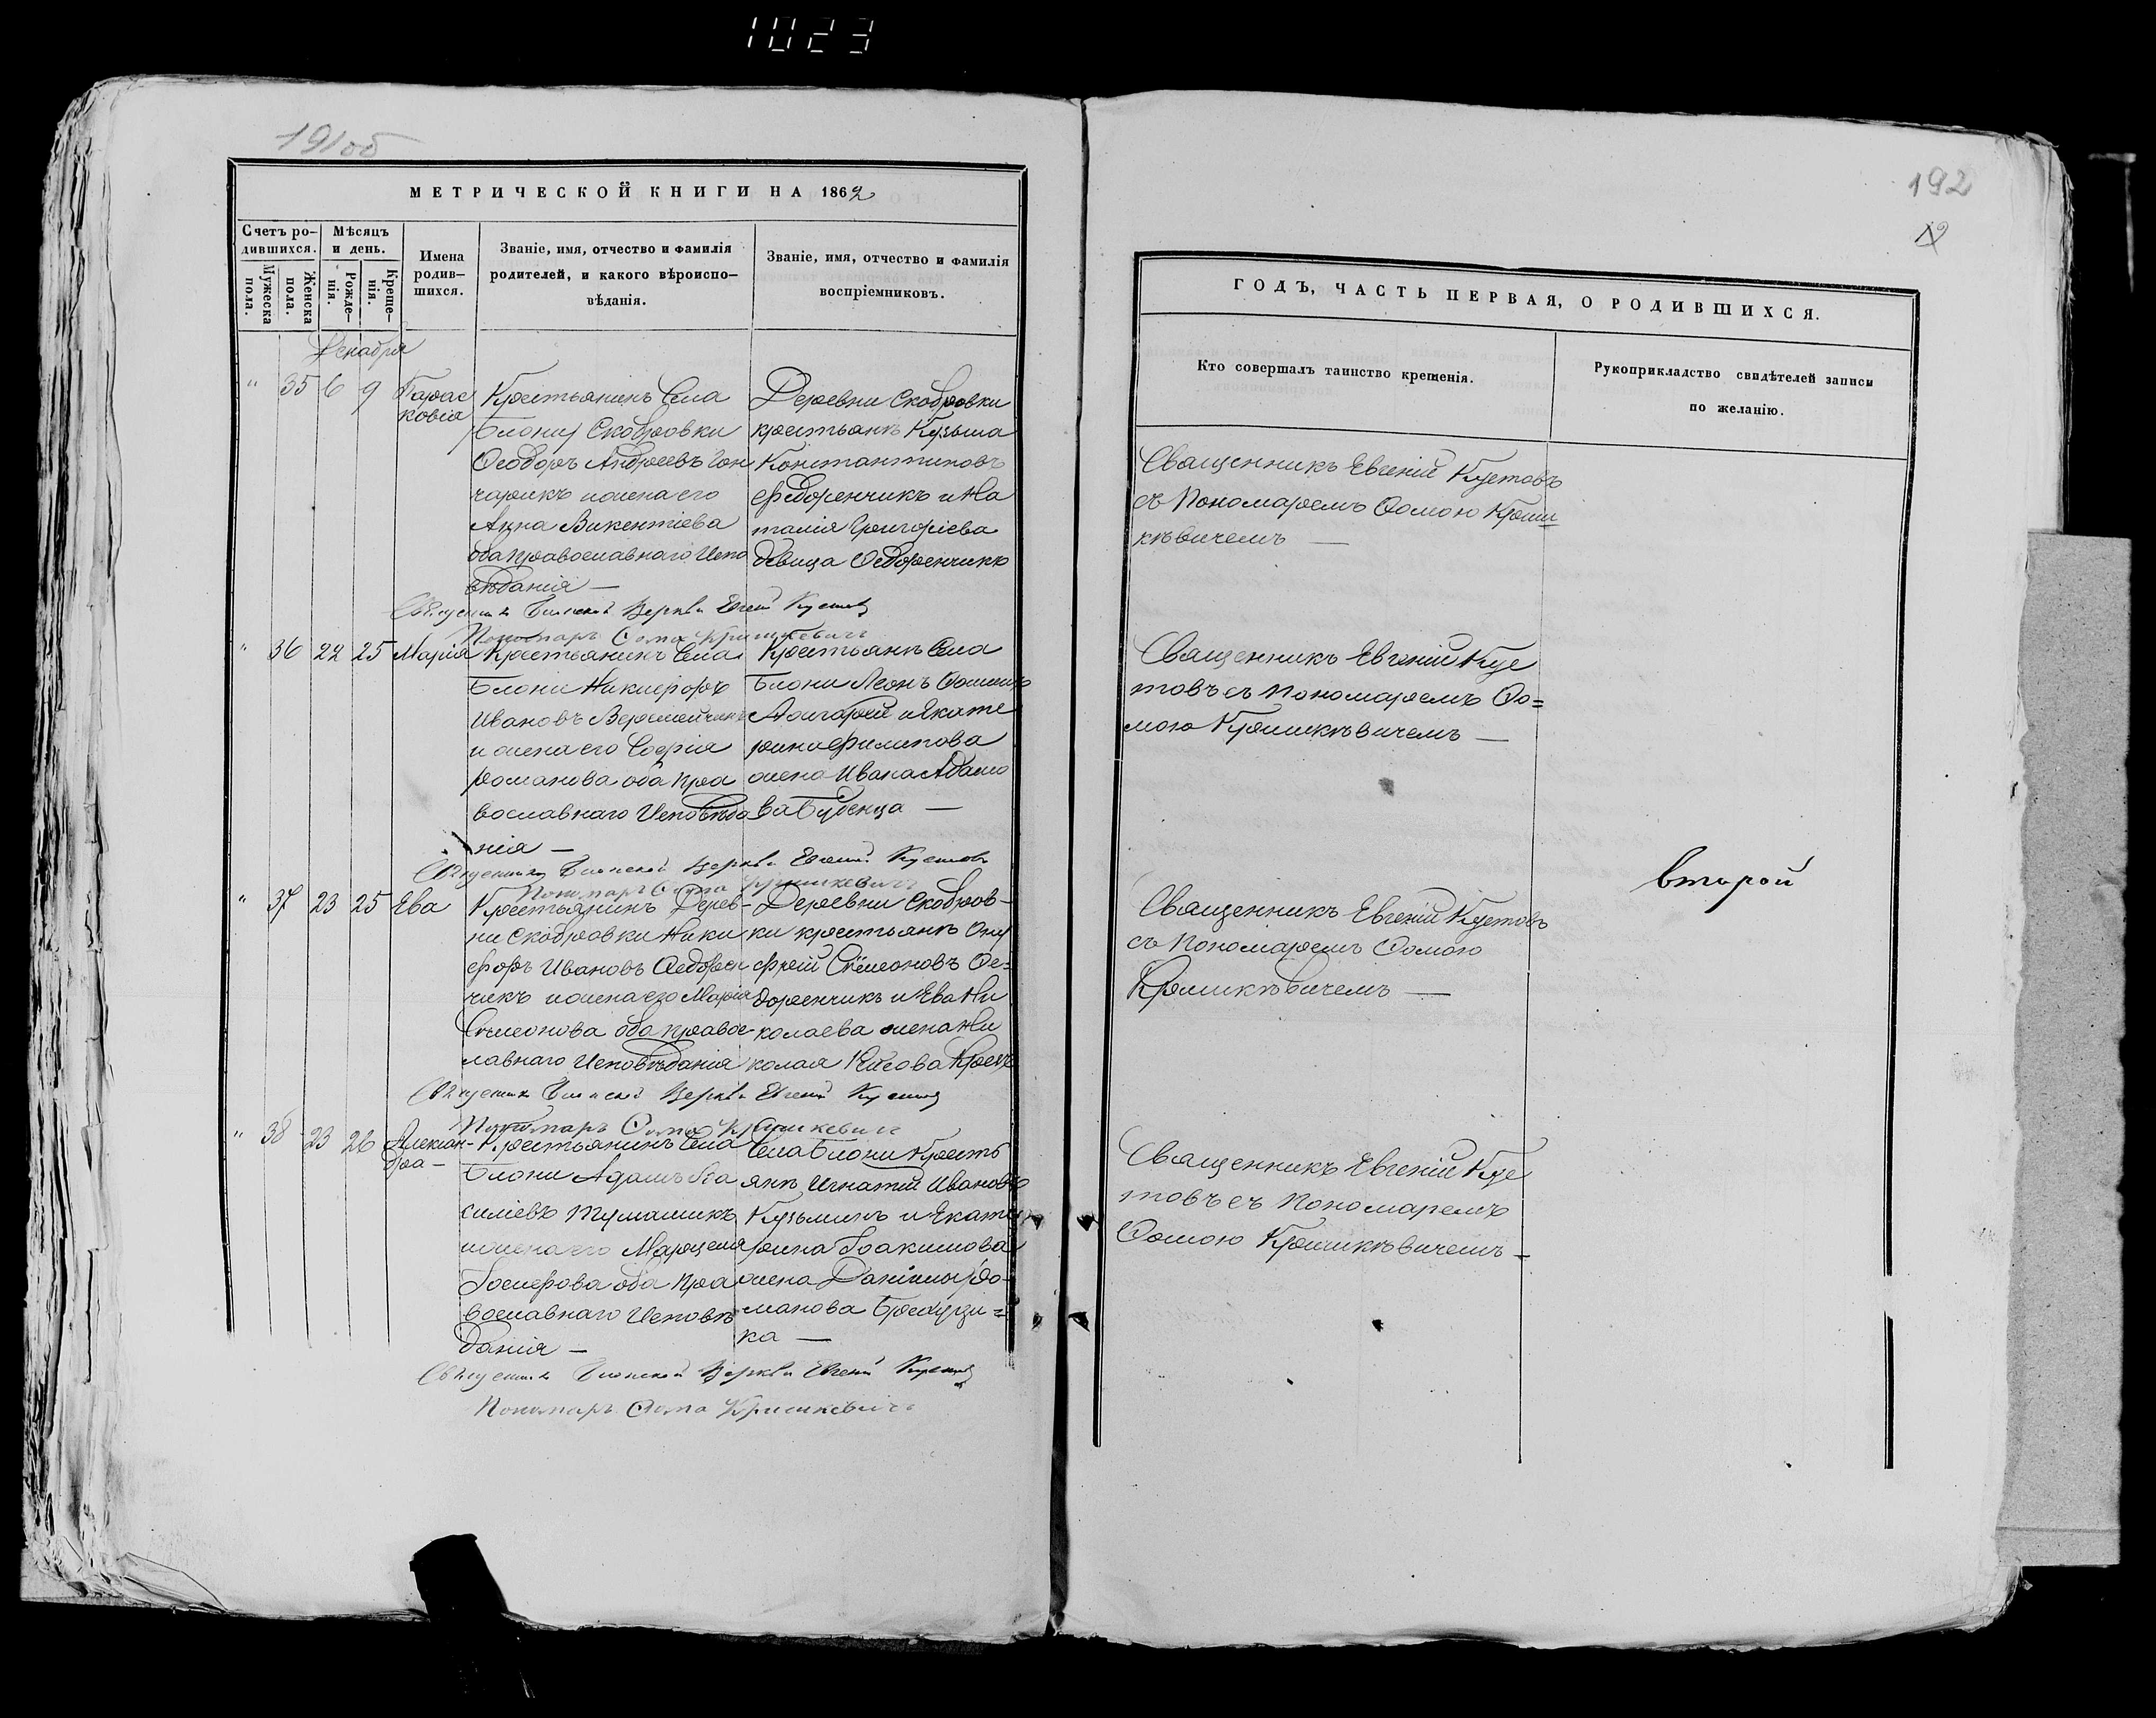 1023
191об
МЕТРИЧЕСКОЙ КНИГИ НА 1862
Счетъ ро-
дившихся.
Мѣсяцъ
и день.
Мужеска
пола.
Женска
пола.
Рожде-
нія.
Креще-
нія.
Имена
родив-
шихся.
Званіе, имя, отчество и фамилія
родителей, и какого вѣроиспо-
вѣданія.
Званіе, имя, отчество и фамилія
воспріемниковъ.
Декабря
" 35 6 9
Парас
ковія
Крестьянинъ Села
Блони Скобровки
Ѳеодоръ Андреевъ Гон
чарикъ и жена его
Анна Викентіева
оба православнаго Испо
вѣданія —
Деревни Скобровки
крестьянъ Кузьма
Константиновъ
Федоренчикъ и На
талія Григоріева
девица Ѳедоренчикъ
Священникъ Блонской Церкви Евгеній Кустовъ
Пономарь Ѳома Кришкевичъ
" 36 22 25 Марія
Крестьянинъ Села
Блони Никифоръ
Ивановъ Веремейчикъ
и жена его Софія
Романова оба пра
вославнаго Исповѣда
нія —
Крестьянъ Села
Блони Леонъ Ѳоминъ
и Екате
рина Филипова
жена Ивана Адамо
ва —
Священникъ Блонской Церкви Евгеній Кустовъ
Пономарь Ѳома Кришкевичъ
" 37 23 25 Ева
Крестьянинъ Дерев-
ни Скобровки Ники
форъ Ивановъ Ѳедорен
чикъ и жена его Марія
Сѵмеонова оба правос
лавнаго Исповѣданія
Деревни Скобров-
ки крестьянъ Ону
фрій Сѵмеоновъ Ѳе-
доренчикъ и Ева Ни
колаева жена Ни
колая
Священникъ Блонской Церкви Евгеній Кустовъ
Пономарь Ѳома Кришкевичъ
" 38 23 26
Алексан-
дра —
Крестьянинъ Села
Блони Адамъ Ва
силіевъ Тумашикъ
и жена его Марцеля
Іосифова оба пра
вославнаго Исповѣ
данія —
Села Блони Кресть
янъ Игнатій Ивановъ
Кузьминъ и Екате
рина Іоакимова
жена Даніила Ро-
манова
ка —
Священникъ Блонской Церкви Евгеній Кустовъ
Пономарь Ѳома Кришкевичъ
192
ГОДЪ, ЧАСТЬ ПЕРВАЯ, О РОДИВШИХСЯ.
Кто совершалъ таинство крещенія.
Рукоприкладство свидѣтелей записи
по желанію.
Священникъ Евгеній Кустовъ
съ Пономаремъ Ѳомою Криш
кѣвичемъ —
Священникъ Евгеній Кус
товъ съ Пономаремъ Ѳо=
мою Кришкѣвичемъ —
второй
Священникъ Евгеній Кустовъ
съ Пономаремъ Ѳомою
Кришкѣвичемъ —
Священникъ Евгеній Кус
товъ съ Пономаремъ
Ѳомою Кришкѣвичемъ —